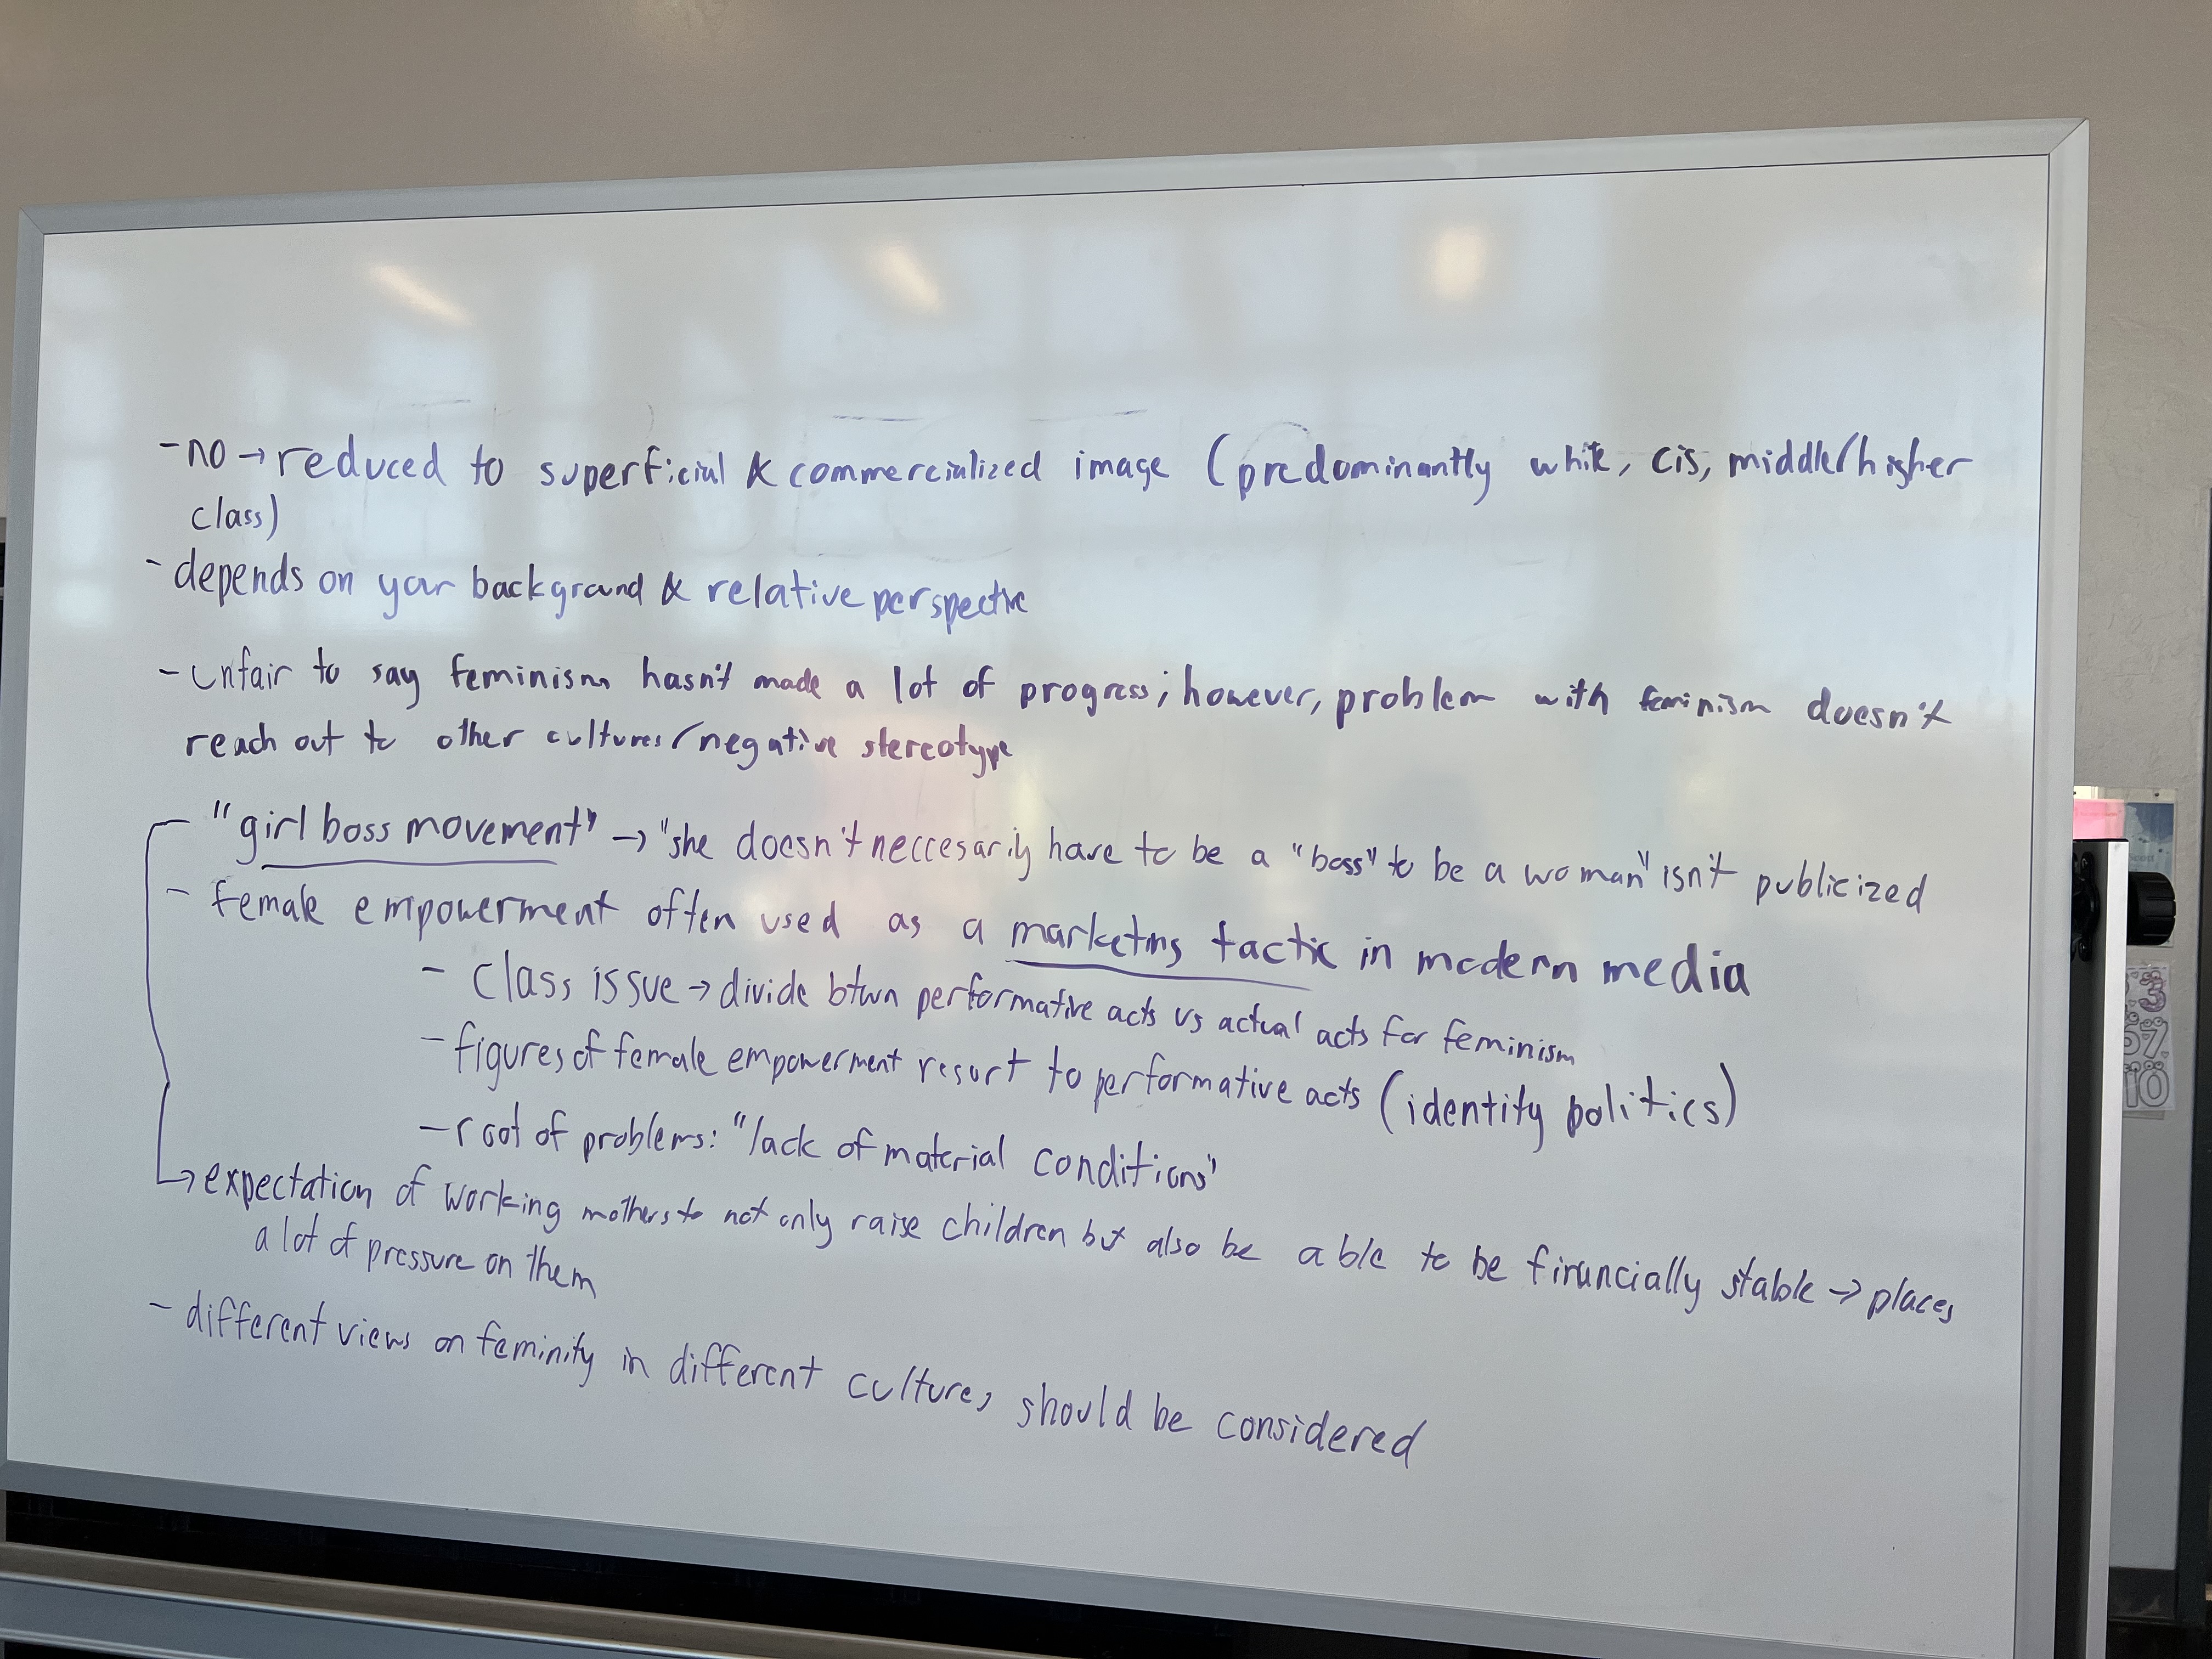 -no→reduced to superficial & commercialized image (predominantly white, cis, middle/higher
class)
- depends on your background & relative perspective
- unfair to say feminism hasn't made a lot of progress; however, problem with feminism doesn't
reach out to other cultures/negative stereotype
- "girl boss movement" → "she doesn't neccesarily have to be a "boss" to be a woman" isn't publicized
- female empowerment often used as a marketing tactic in modern media
- class issue → divide btwn performative acts vs actual acts for feminism
- figures of female empowerment resort to performative acts (identity politics)
- root of problems: "lack of material conditions"
→ expectation of working mothers to not only raise children but also be able to be financially stable → places
a lot of pressure on them
- different views on feminity in different cultures should be considered
3
57
10